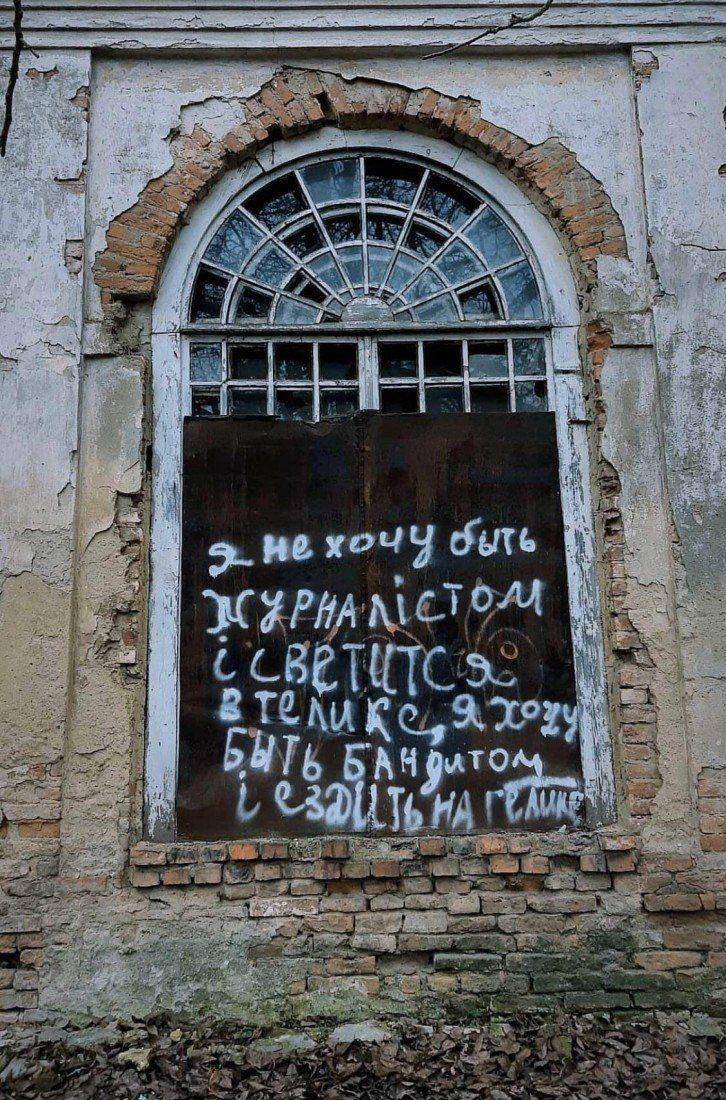 я не хочу быть
журналістом
і светится
в телике, я хочу
быть бандитом
і ездить на гелике